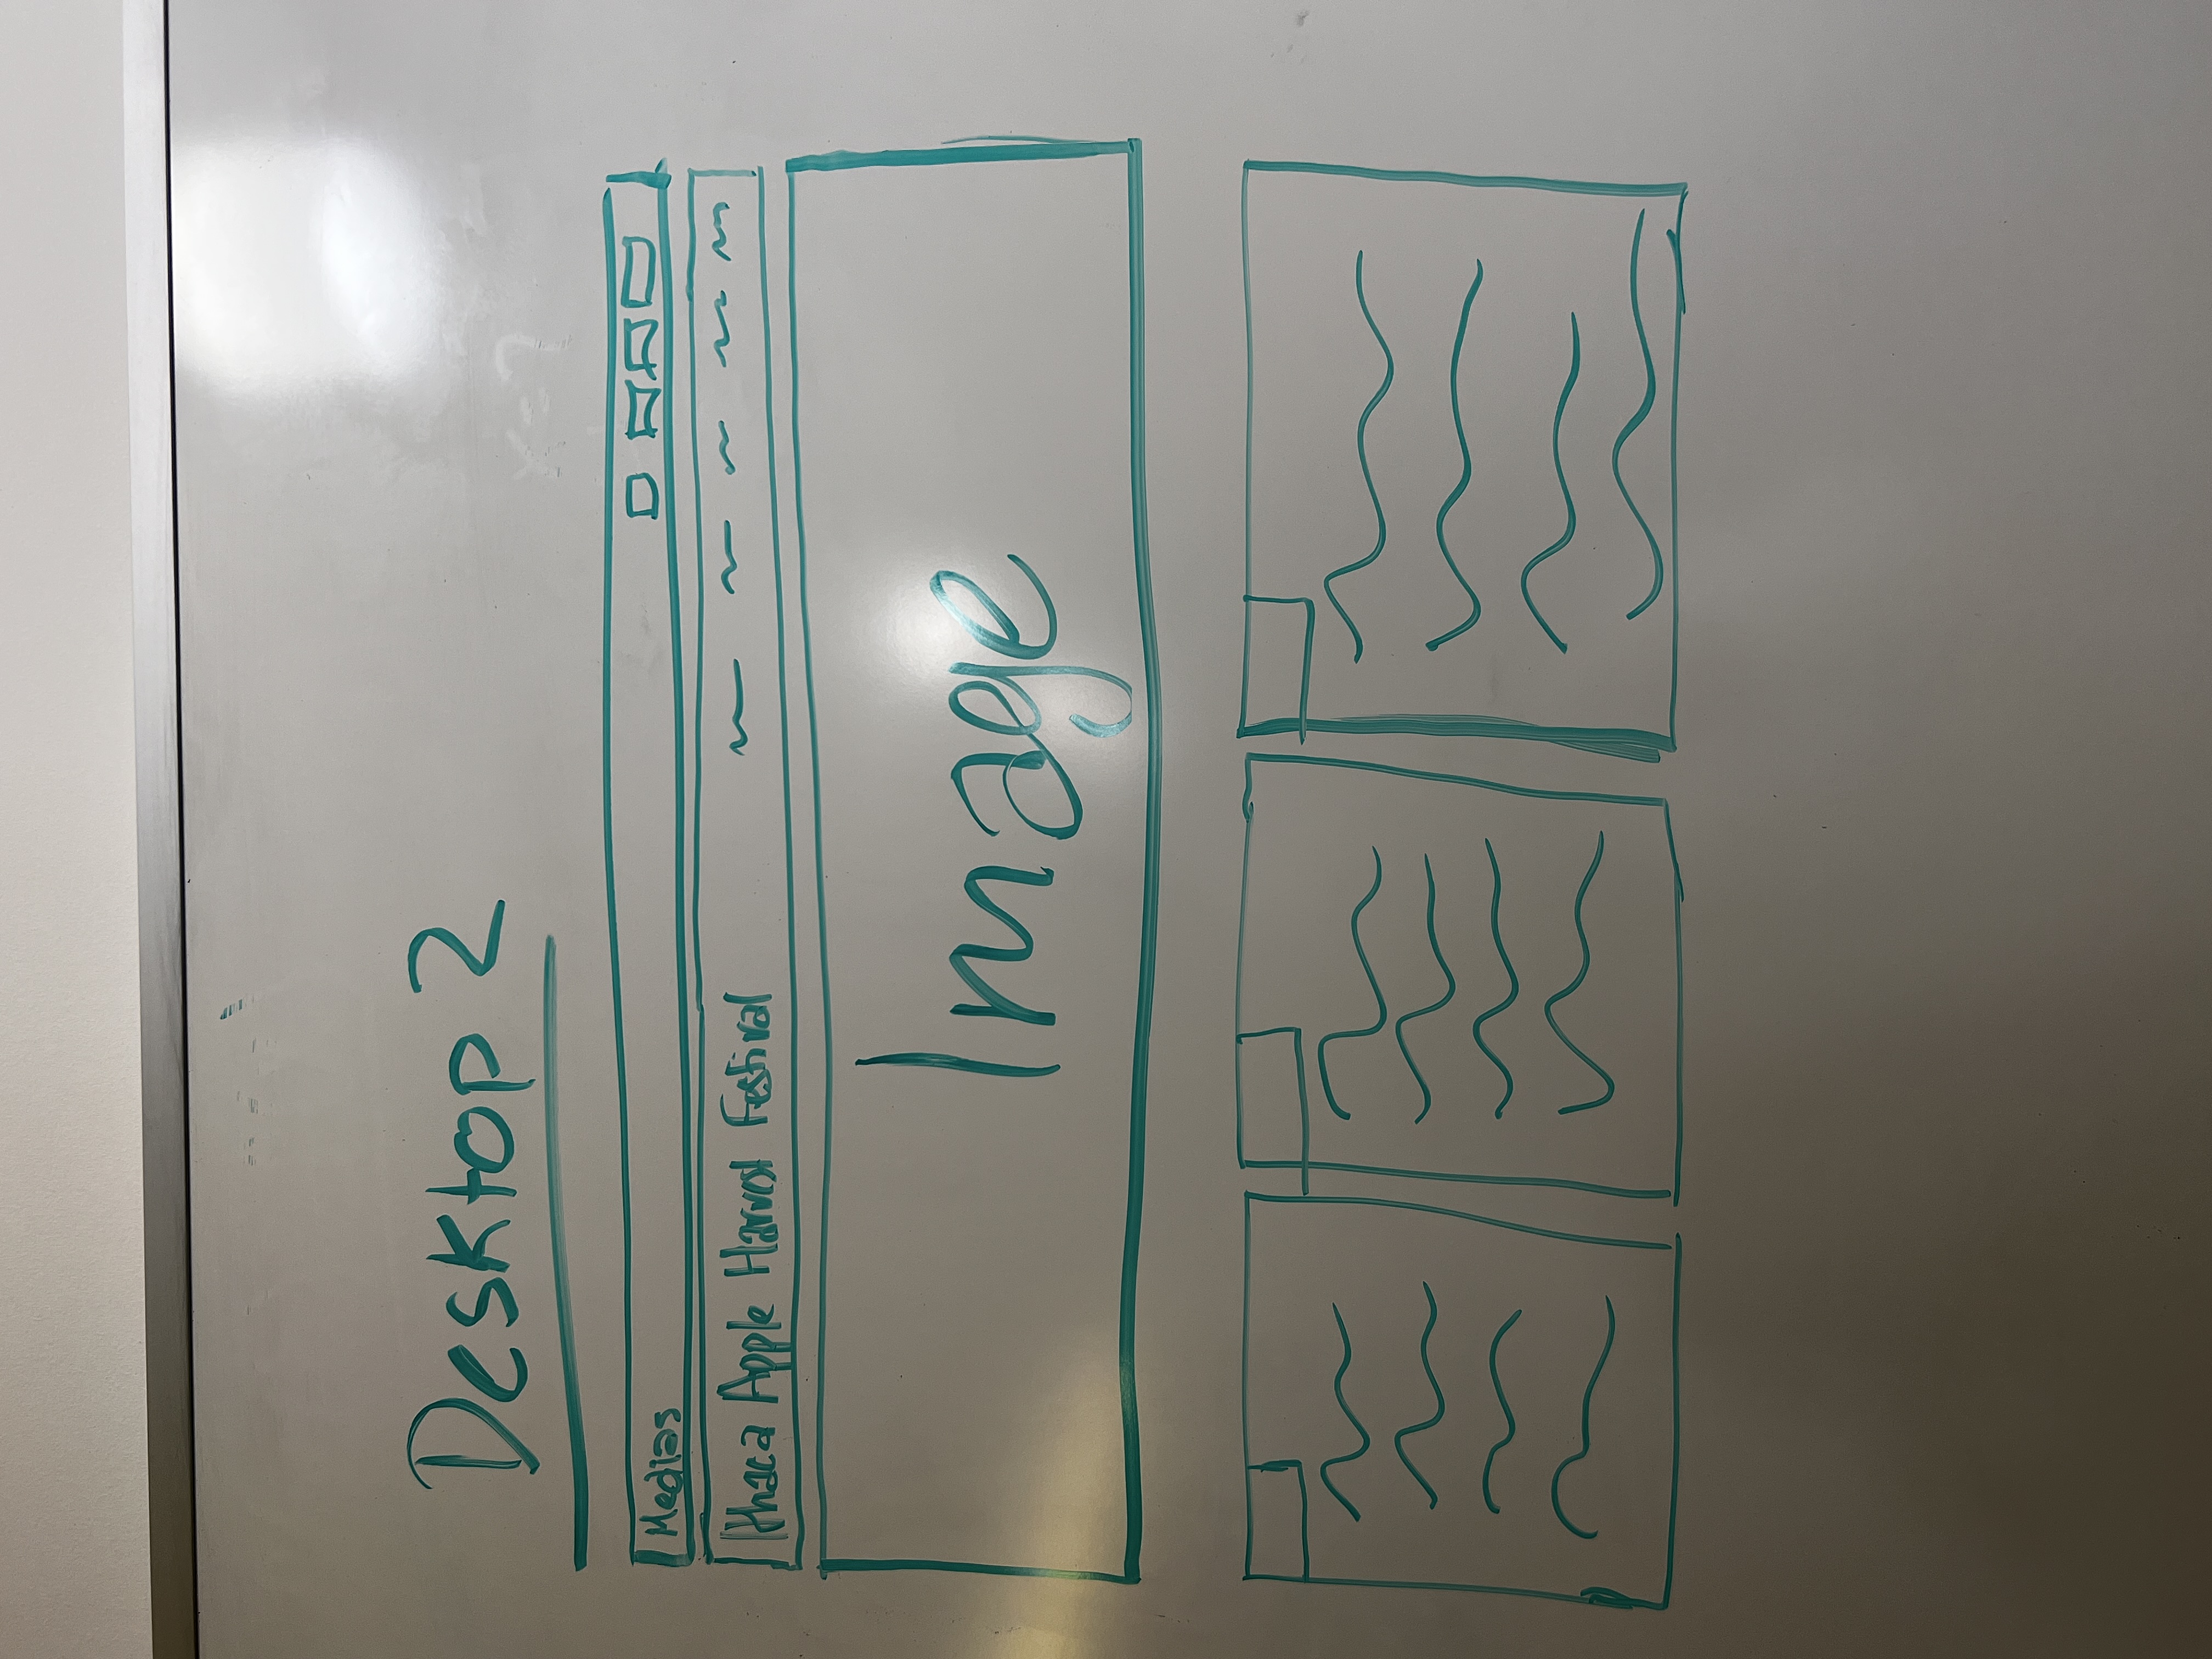 Desktop 2
x = ?
Medias
Ithaca Apple Harvest Festival
Image